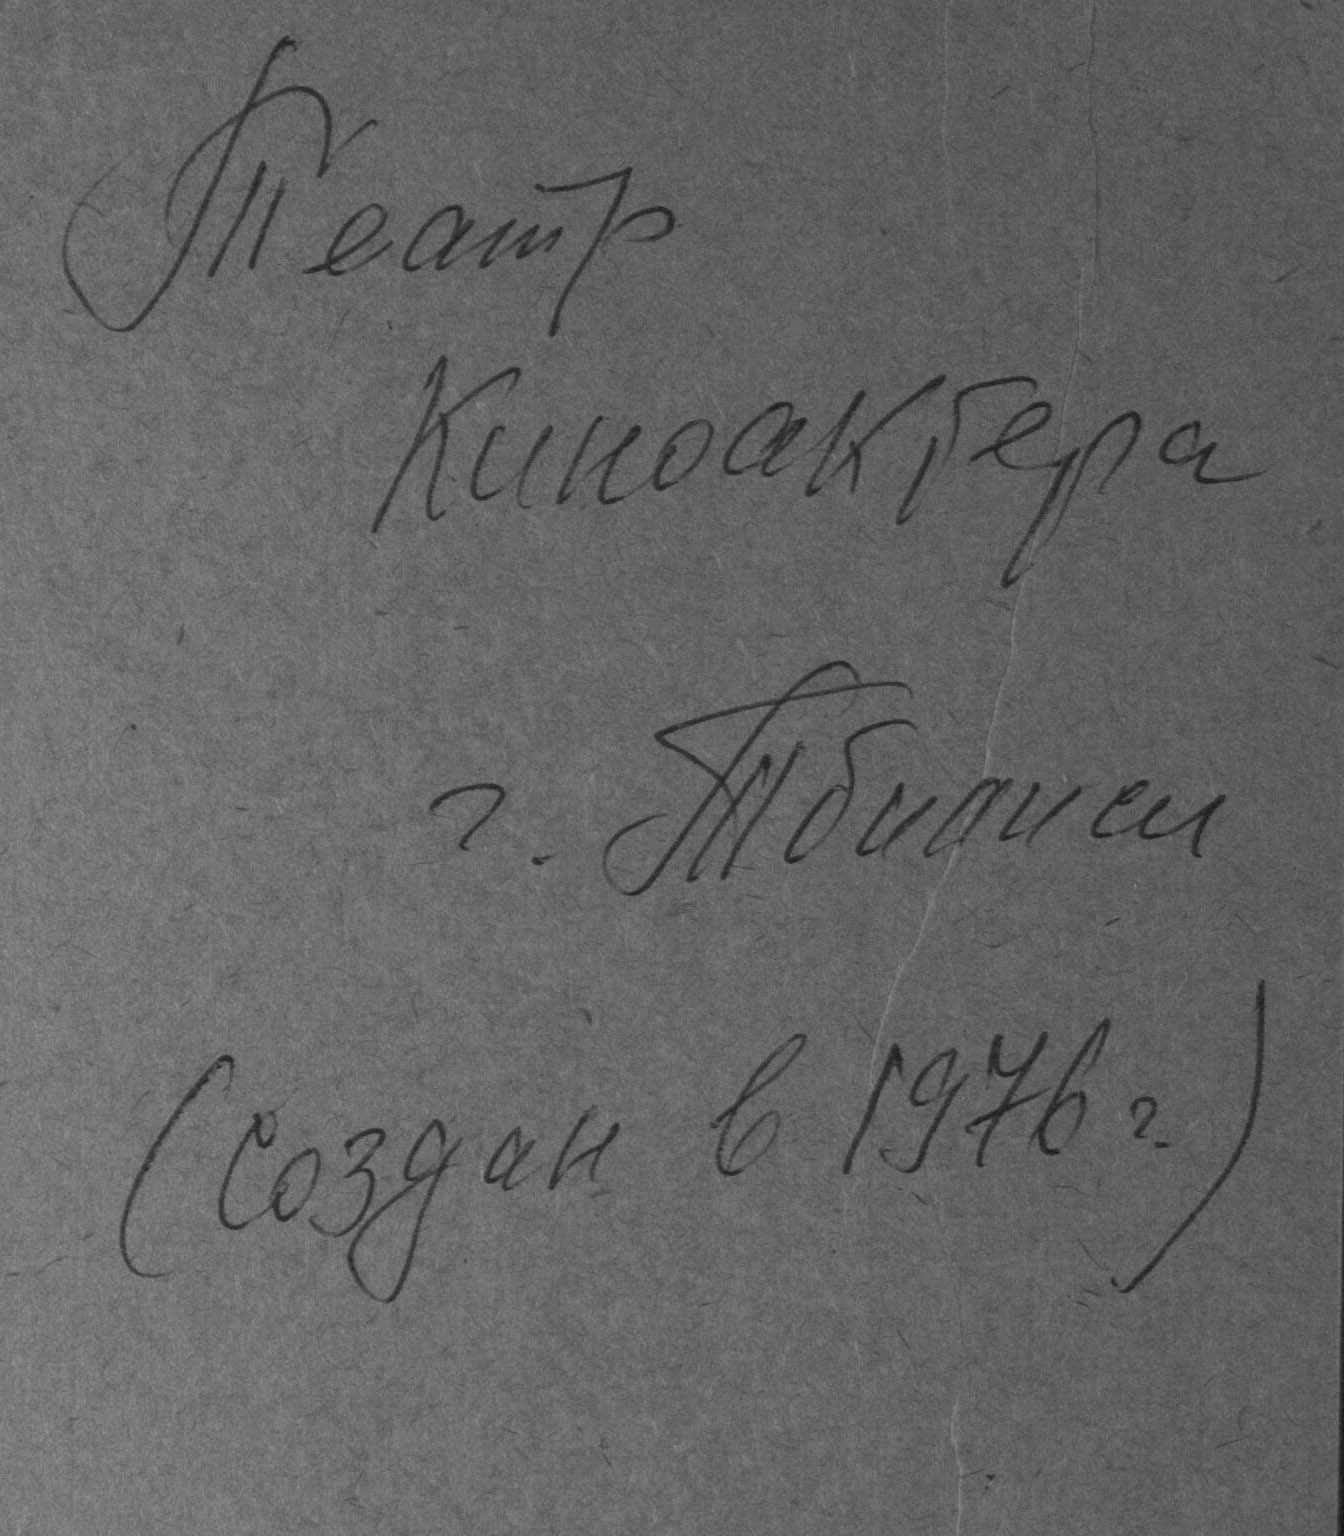 Театр
Киноактера
г. Тбилиси
(создан в 1976 г.)